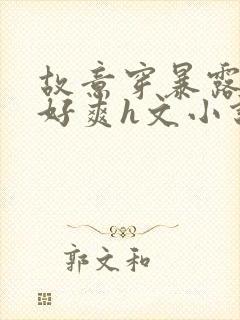 故意穿暴露
好爽h文小
郭文和